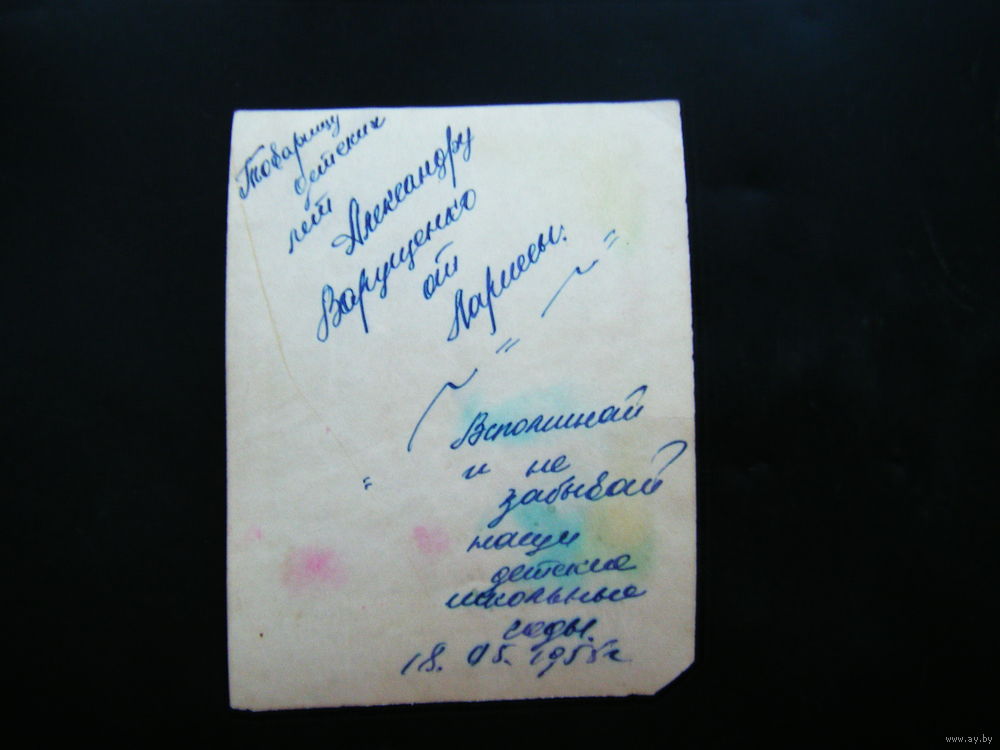 Товарищу
детских
лет
Александру
Варущенко
от
Ларисы.
Вспоминай
и не
забывай
наши
детские
школьные
годы.
18. 05. 1955г
www.ay.by